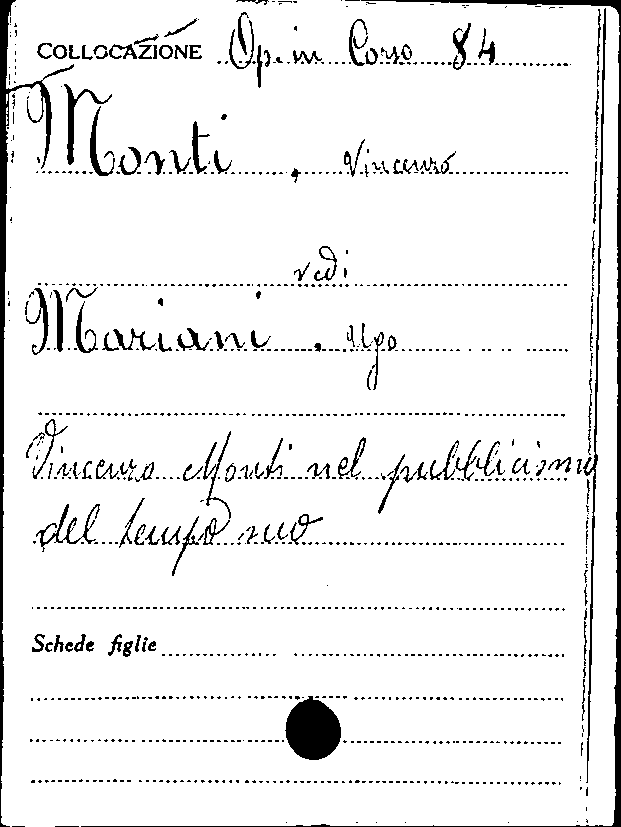 COLLOCAZIONE Op. in Corso 84
Monti, Vincenzo
vedi
Mariani. Ugo
Vincenzo Monti nel pubblicismo
del tempo suo
Schede figlie